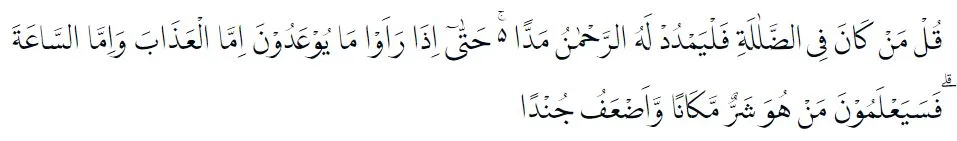 قُلْ مَنْ كَانَ فِى الضَّلٰلَةِ فَلْيَمْدُدْ لَهُ الرَّحْمٰنُ مَدًّا ەۚ حَتّٰىٓ اِذَا رَاَوْا مَا يُوْعَدُوْنَ اِمَّا الْعَذَابَ وَاِمَّا السَّاعَةَ
ۗفَسَيَعْلَمُوْنَ مَنْ هُوَ شَرٌّ مَّكَانًا وَّاَضْعَفُ جُنْدًا